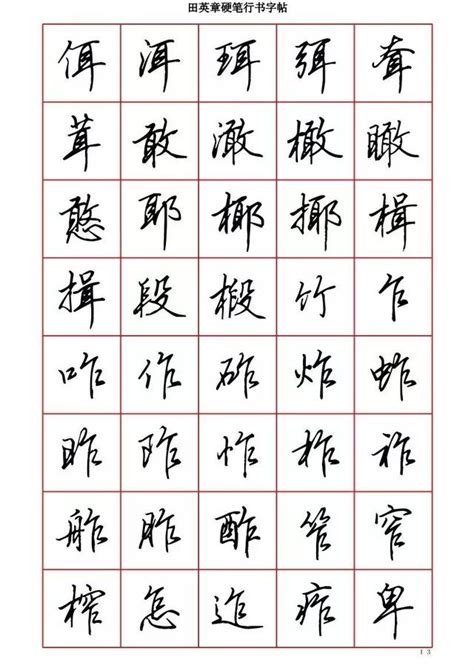 田英章硬笔行书字帖
佴 洱 珥 弭 耷
茸 敢 澉 橄 瞰
憨 耶 椰 揶 楫
揖 段 椴 竹 乍
咋 作 砟 炸 蚱
昨 阼 怍 柞 祚
舴 胙 酢 笮 窄
榨 怎 迮 痄 卑
13